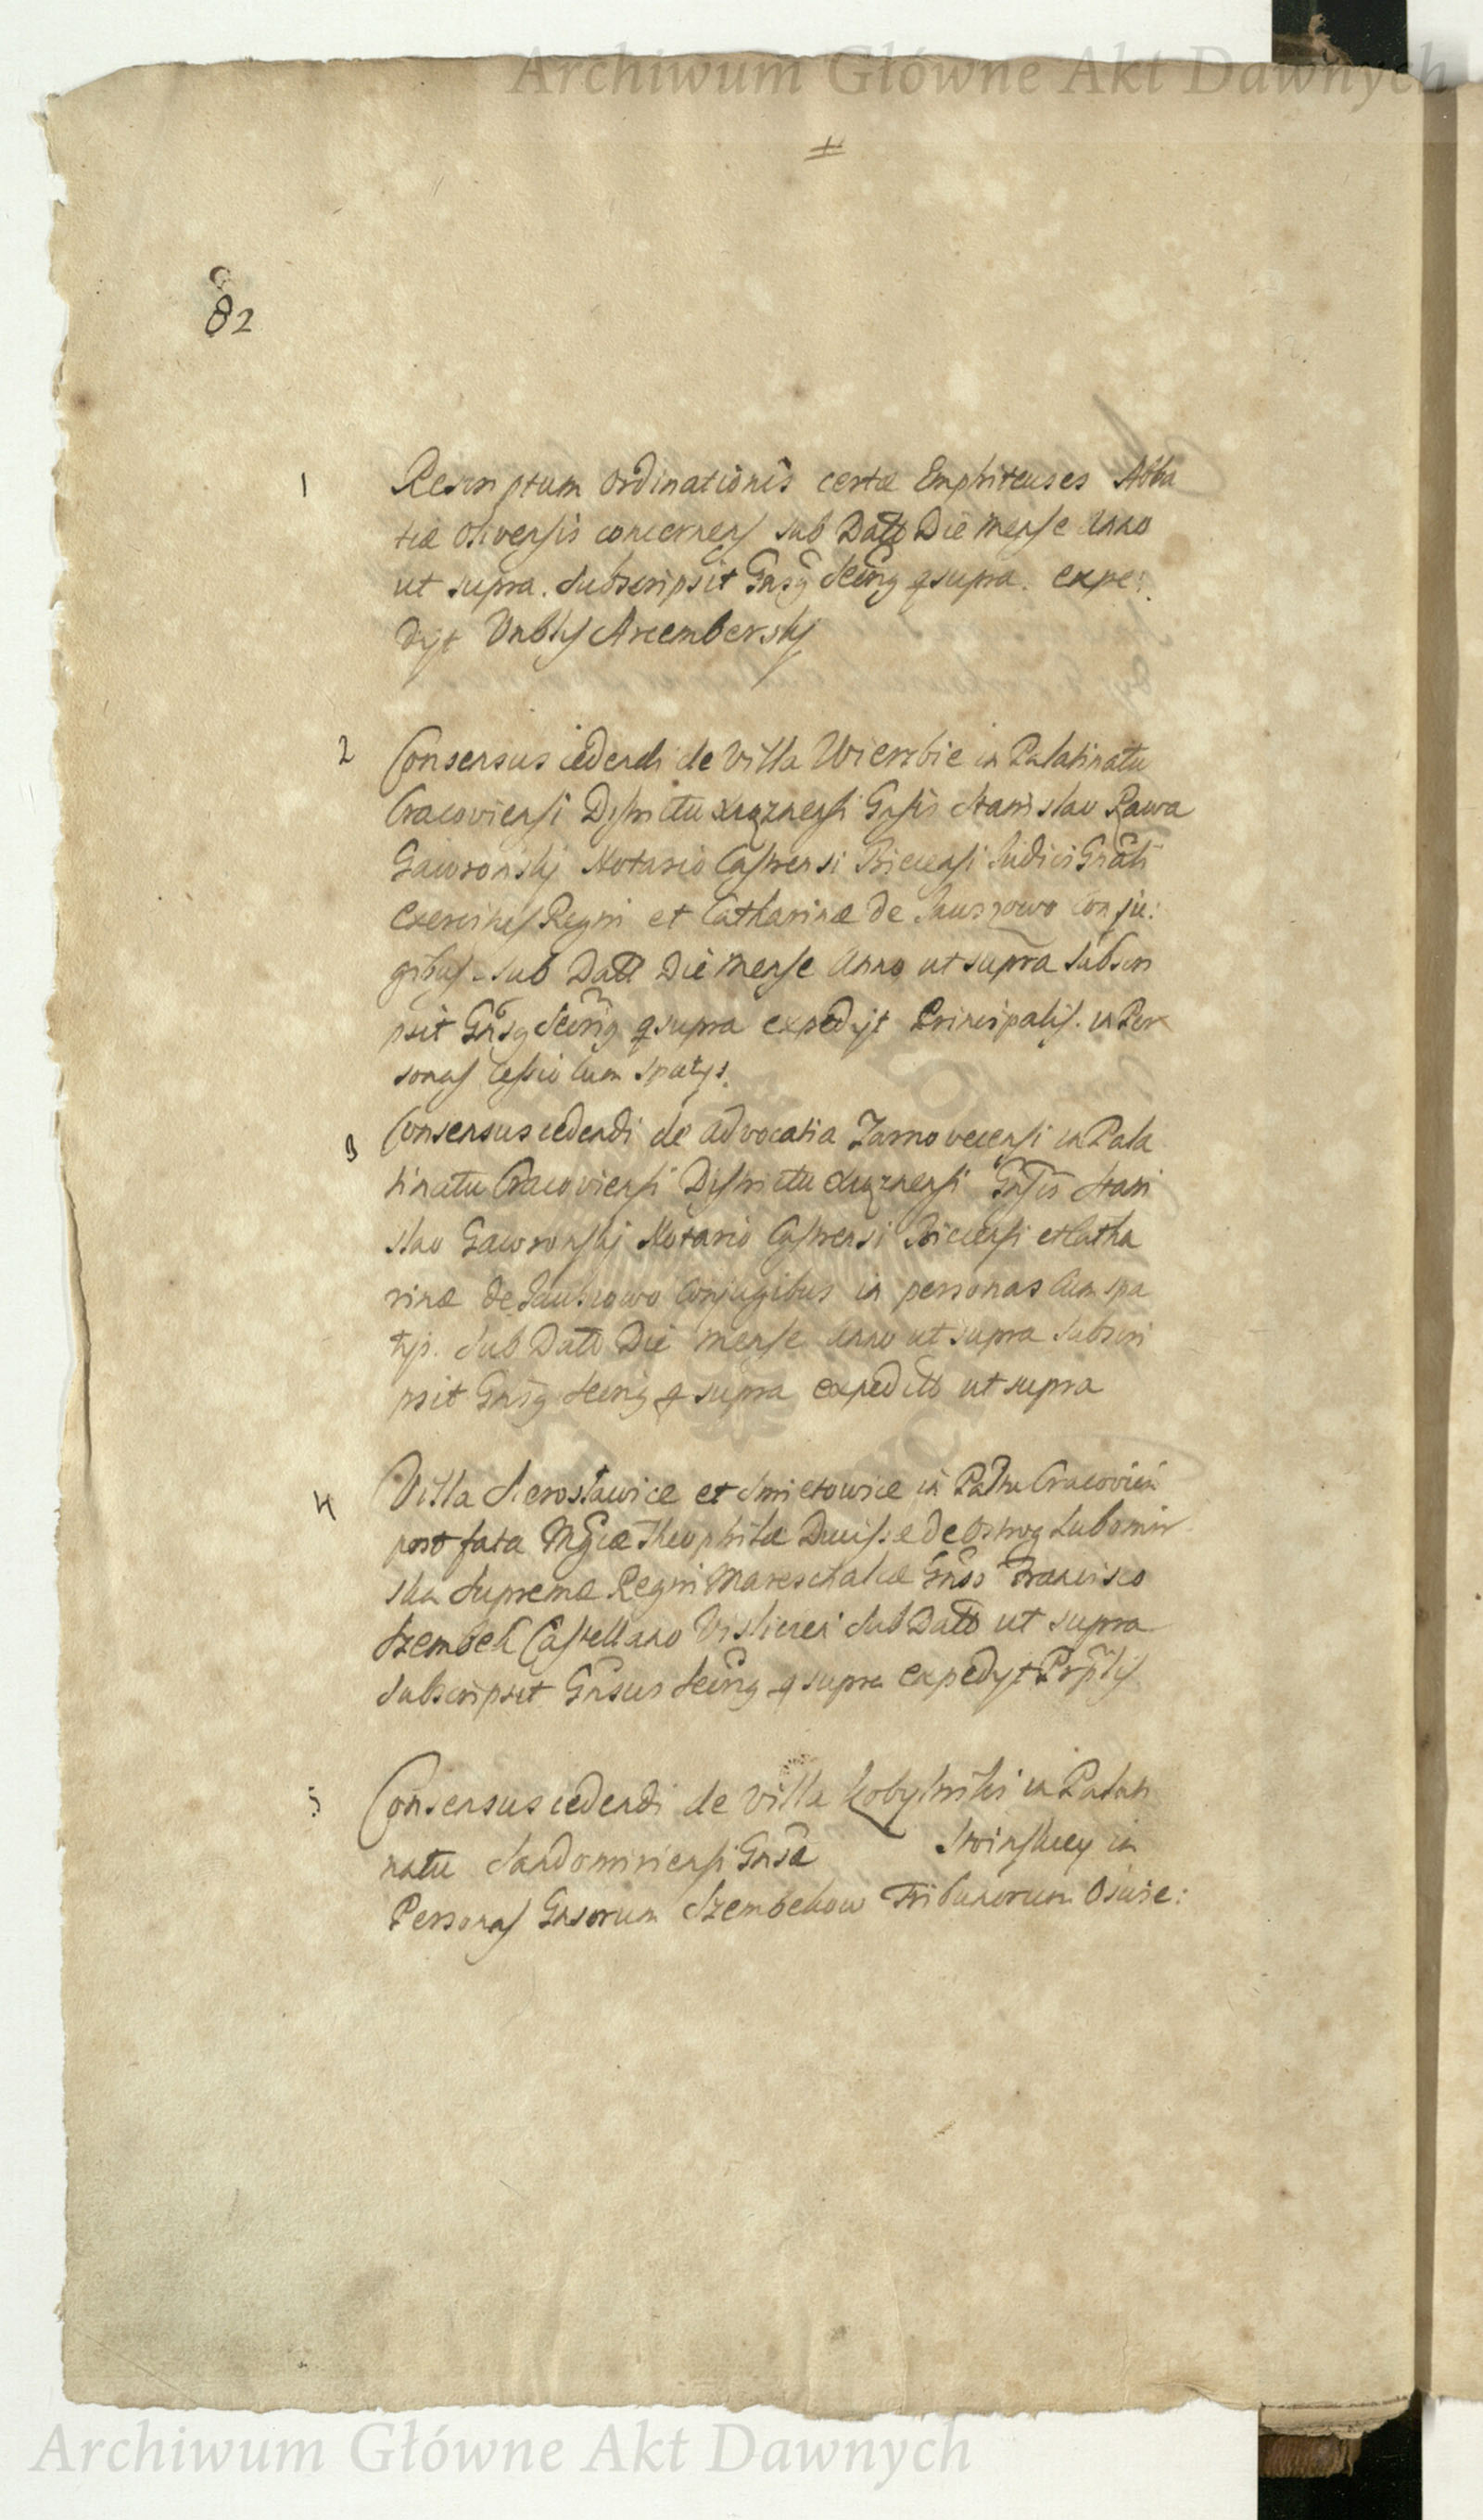 Archiwum Główne Akt Dawnych
82
1 Rescriptum Ordinationis certæ Emphiteuses Abba
tiæ Olivensis concernens sub Datt Die Mense Anno
ut supra. Subscripsit Gnsg Scirig q supra. expe:
dyt Vnblis Arcembersky
2 Consensus cedendi de Villa Wierzbie in Palatinatu
Cracoviensi Districtu Xiąznensi Gnsis Stanislao Rawa
Gawronskj Notario Castrensi Biecensi Judici Gnãli
Exercitus Regni et Catharinæ de conju:
gibus. Sub Datt Die Mense Anno ut supra Subscri
psit Gnsg Scirig q supra expedyt Principalis. in Per
sonas Cessio cum spatys.
3 Consensus cedendi de Advocatia Zarnovecensi in Pala
tinatu Cracoviensi Districtu Xiąznensi Gnsis Stani
slao Gawronskj Notario Castrensi Biecensi et Catha
rinæ de Conjugibus in personas Cum spa
tys. Sub Datt Die Mense Anno ut supra Subscri
psit Gnsg Scirig q supra expeditt ut supra
4 Villa Sierosławice et Smiełowice in Palttu Cracovien
post fata Mgcæ Theophilæ Ducissæ de Ostrog Lubomir
ska Supremæ Regni Mareschalcæ Gnso Francisco
Szembek Castellano Vislicen Sub Datt ut supra
Subscripsit Gnsus Scirig q supra expedyt Prplis
5 Consensus cedendi de Villa Kobylniki in Palati
natu Sandomiriensi Gnsæ Swinskiey in
Personas Gnsorum Szembekow Tribunorum Oswie:
Archiwum Główne Akt Dawnych